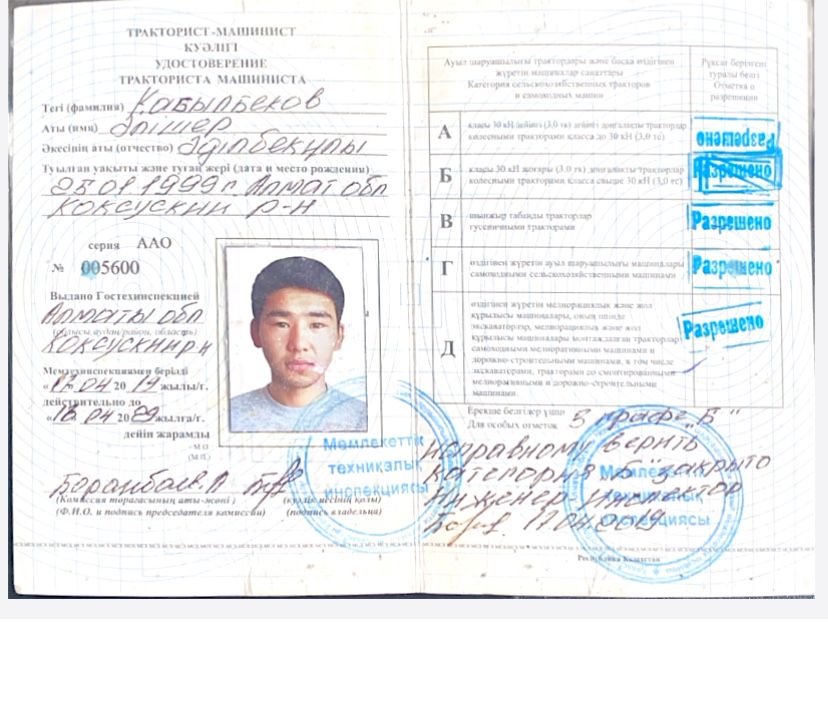 ТРАКТОРИСТ-МАШИНИСТ
КУӘЛІГІ
УДОСТОВЕРЕНИЕ
ТРАКТОРИСТА МАШИНИСТА
Тегі (фамилия) Қабылбеков
Аты (имя) Әлішер
Әкесінің аты (отчество) Әділбекұлы
Туылған уақыты және туған жері (дата и место рождения)
25.01.1999 г. Алмат обл
Коксуский р-н
серия ААО
№ 005600
Выдано Гостехинспекцией
Алматы обл
(облысы, аудан/район, область)
Коксуский рн
Мемтехинспекциямен берілді
04 2019 жылы/г.
действительно до
04 2029 жылға/г.
дейін жарамды
М.О
(М.П)
(Комиссия торағасының аты-жөні)
(Ф.И.О. и подпись председателя комиссии)
(куәлік иесінің қолы)
(подпись владельца)
Мемлекеттік
техникалық
инспекциясы
Ауыл шаруашылығы тракторлары және басқа өздігінен
жүретін машиналар санаттары
Категория сельскохозяйственных тракторов
и самоходных машин
Рұқсат берілгені
туралы белгі
Отметка о
разрешении
А
класы 30 кН дейінгі (3,0 тк) дейінгі доңғалақты тракторлар
колесными тракторами класса до 30 кН (3,0 тс)
Разрешено
Б
класы 30 кН жоғары (3,0 тк) доңғалақты тракторлар
колесными тракторами класса свыше 30 кН (3,0 тс)
Разрешено
В
шынжыр табанды тракторлар
гусеничными тракторами
Разрешено
Г
өздігінен жүретін ауыл шаруашылығы машиналары
самоходными сельскохозяйственными машинами
Разрешено
Д
өздігінен жүретін мелиоративтік және жол
құрылысы машиналары, оның ішінде
экскаваторлар, мелиоративтік және жол
құрылысы машиналары монтаждалған тракторлар
самоходными мелиоративными машинами и
дорожно-строительными машинами, в том числе
экскаваторами, тракторами со смонтированными
мелиоративными и дорожно-строительными
машинами
Разрешено
Ерекше белгілер үшін
Для особых отметок В графе „Б"
исправному верить
категория Б закрыто
Инженер-инспектор
17.04.2019
Мемлекеттік
техникалық
инспекциясы
Республика Казахстан